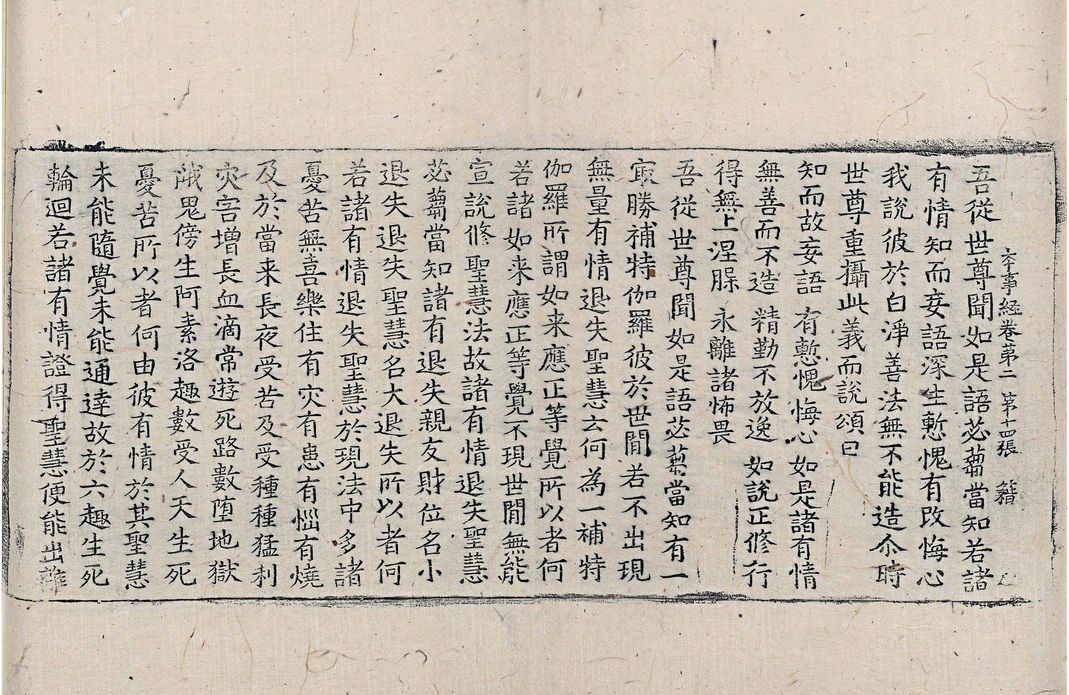 夲事經卷第二 第十四張 籍
吾從世尊聞如是語苾蒭當知若諸
有情知而妄語深生慙愧有改悔心
我說彼於白淨善法無不能造尒時
世尊重攝此義而說頌曰
知而故妄語 有慙愧悔心 如是諸有情
無善而不造 精勤不放逸 如說正修行
得無上涅槃 永離諸怖畏
吾從世尊聞如是語苾蒭當知有一
冣勝補特伽羅彼於世閒若不出現
無量有情退失聖慧云何為一補特
伽羅所謂如来應正等覺所以者何
若諸如来應正等覺不現世閒無能
宣說修聖慧法故諸有情退失聖慧
苾蒭當知諸有退失親友財位名小
退失退失聖慧名大退失所以者何
若諸有情退失聖慧於現法中多諸
憂苦無喜樂住有灾有患有惱有燒
及於當来長夜受苦及受種種猛利
灾害增長血滴常遊死路數堕地獄
餓鬼傍生阿素洛趣數受人天生死
憂苦所以者何由彼有情於其聖慧
未能隨覺未能通達故於六趣生死
輪迴若諸有情證得聖慧便能出離